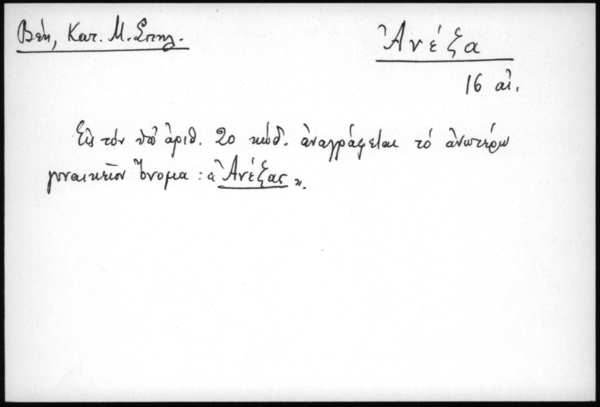 Βέη, Κατ. Μ. Σπηλ.
Ἀνέξα
16 αἰ.
Εἰς τόν ὑπ' ἀριθ. 20 κώδ. ἀναγράφεται τό ἀνωτέρω
γυναικεῖον ὄνομα : «Ἀνέξας».